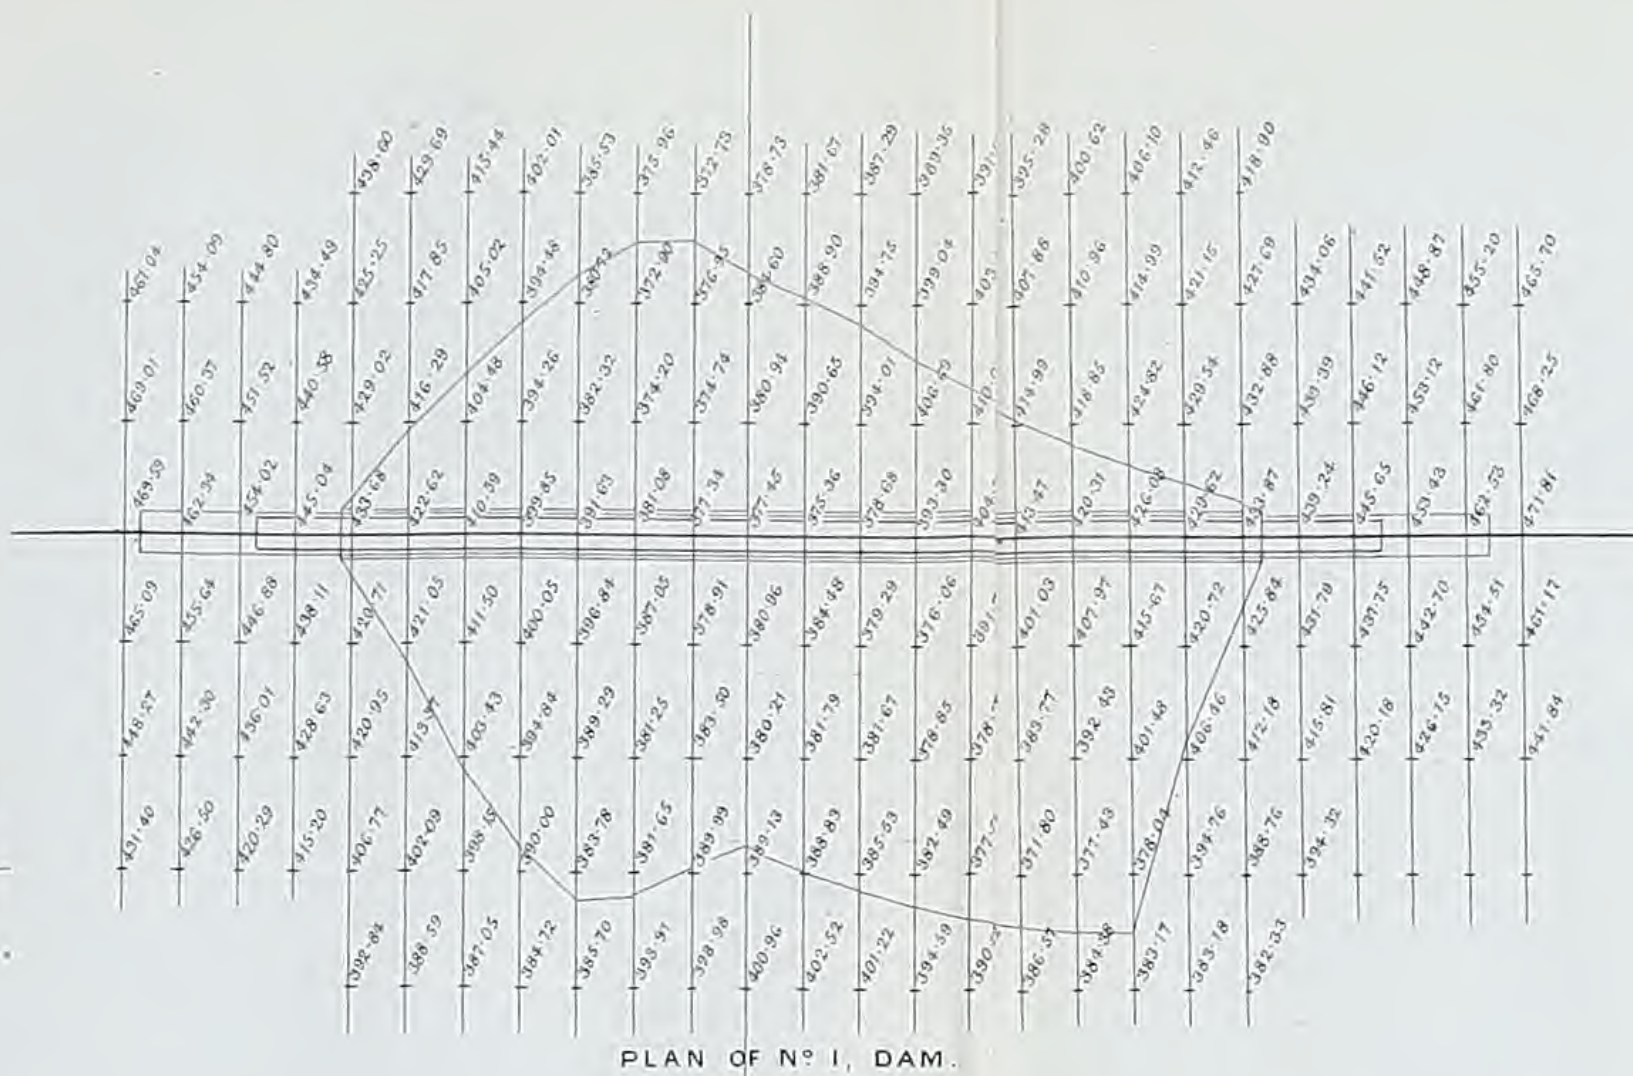 438·60 429·69 415·44 402·01 385·53 375·96 372·73 378·73 381·67 387·29 389·35 395·28 400·62 406·10 412·46 418·90
467·04 454·09 444·80 434·49 425·25 417·85 405·02 394·48 372·90 376·95 384·60 388·90 394·75 399·04 407·86 410·96 414·99 421·15 427·69 434·06 441·52 448·87 455·20 465·70
469·01 460·37 451·52 440·58 429·02 416·29 404·48 394·26 382·32 374·20 374·74 380·94 390·65 394·01 406·69 414·99 418·85 424·82 429·54 432·88 439·39 446·12 453·12 461·80 468·25
469·59 462·34 454·02 445·04 433·68 422·62 410·39 399·85 391·63 381·08 377·34 377·45 375·36 378·68 393·30 413·47 420·31 426·08 429·62 433·87 439·24 445·65 453·43 462·53 471·81
465·09 455·64 446·88 438·11 420·71 421·05 411·50 400·05 396·84 387·05 378·91 380·96 384·48 379·29 376·06 401·03 407·97 415·67 420·72 425·84 431·79 437·75 442·70 454·51 461·17
448·27 442·30 436·01 428·63 420·95 413·47 403·43 394·84 389·29 381·25 383·50 380·21 381·79 381·67 378·85 383·77 392·43 401·48 406·46 412·18 415·81 420·18 426·15 433·32 441·84
431·40 426·50 420·29 415·20 406·77 402·09 398·15 390·00 383·78 381·65 389·99 389·13 388·83 385·53 382·49 371·80 377·43 378·04 394·76 388·76 394·32
392·84 388·59 387·05 384·72 385·70 393·97 398·98 400·96 402·52 401·22 394·59 386·57 384·38 383·17 383·18 382·33
PLAN OF Nº 1, DAM.